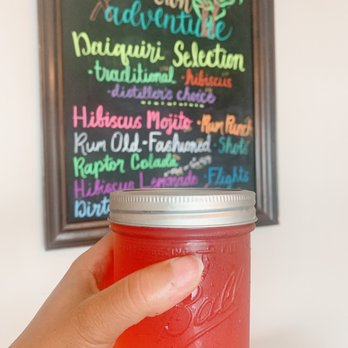 own
adventure
Daiquiri Selection
·traditional ·hibiscus
·distiller's choice
Hibiscus Mojito ·Rum Punch
Rum Old-Fashioned ·Shots
Raptor Colada
Hibiscus Lemonade ·Flights
Dirt
Ball